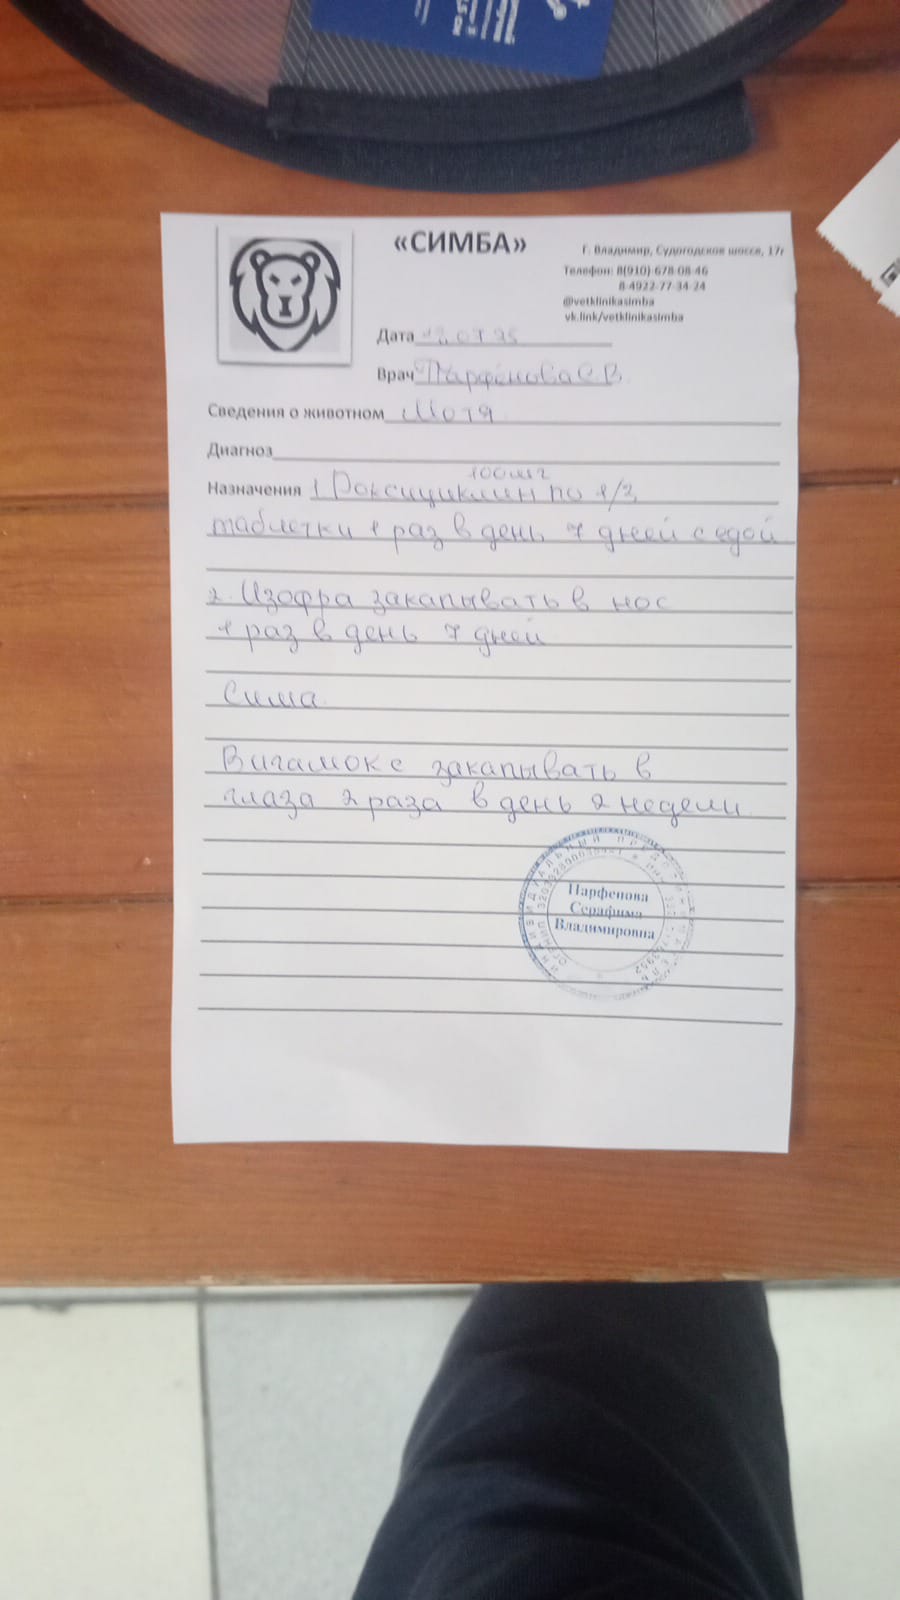 «СИМБА»
Г. Владимир, Судогодское шоссе, 17г
Телефон: 8(910)-678-08-46
8-4922-77-34-24
@vetklinikasimba
vk.link/vetklinikasimba
Дата
Врач Парфенова С В
Сведения о животном Мотя
Диагноз
100мг
Назначения 1 Доксициклин по 1/2
таблетки 1 раз в день 7 дней с едой
2. Изофра закапывать в нос
1 раз в день 7 дней
Сима
Вигамокс закапывать в
глаза 2 раза в день 2 недели
Парфенова
Серафима
Владимировна